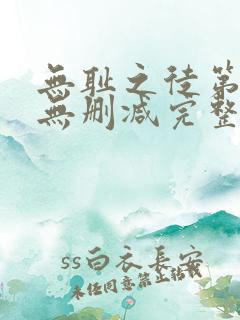 無耻之徒第
無删减完整
ss白衣長安
未经同意禁止转载